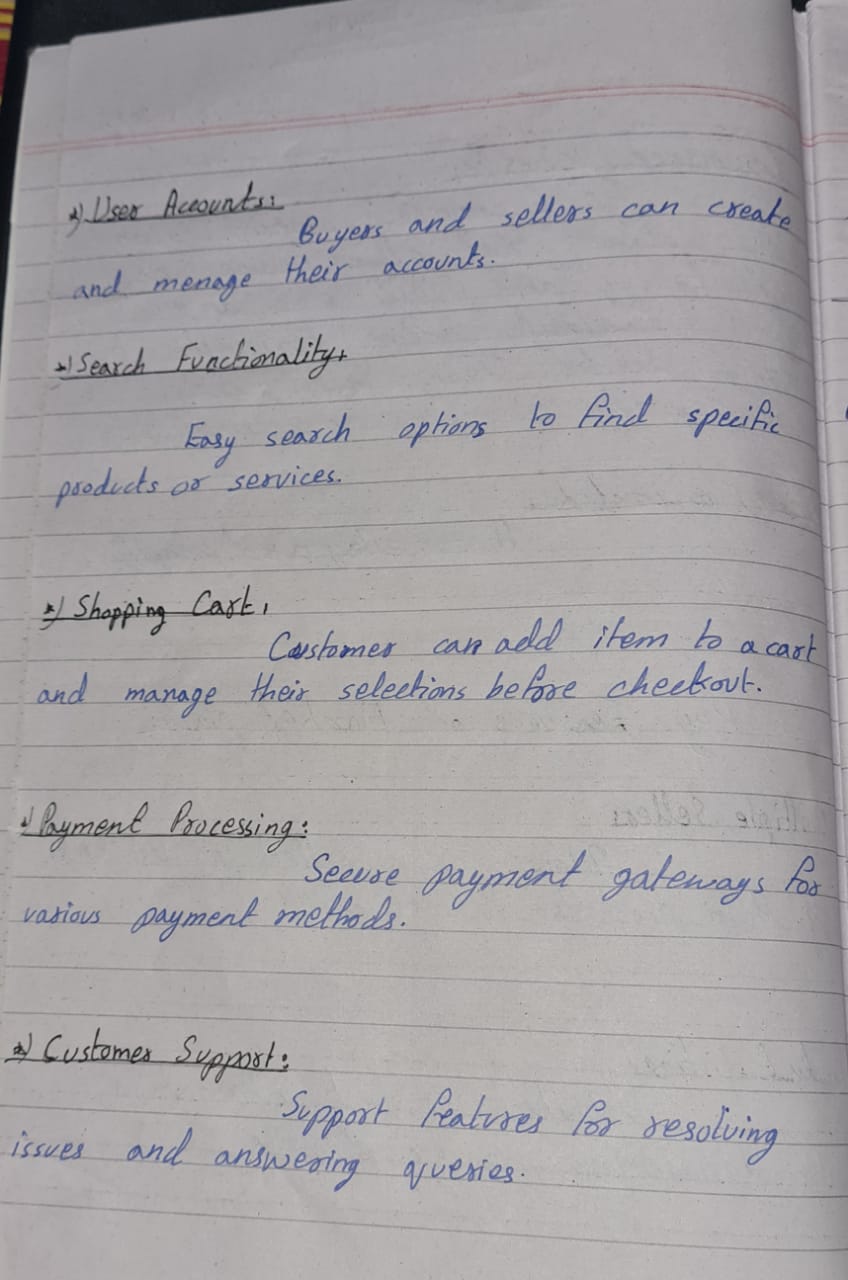 *) User Accounts:
Buyers and sellers can create
and menage their accounts.
*) Search Functionality,
Easy search options to find specific
products or services.
*) Shopping Cart,
Customer can add item to a cart
and manage their selections before checkout.
*) Payment Processing:
Secure payment gateways for
various payment methods.
*) Customer Support:
Support features for resolving
issues and answering queries.